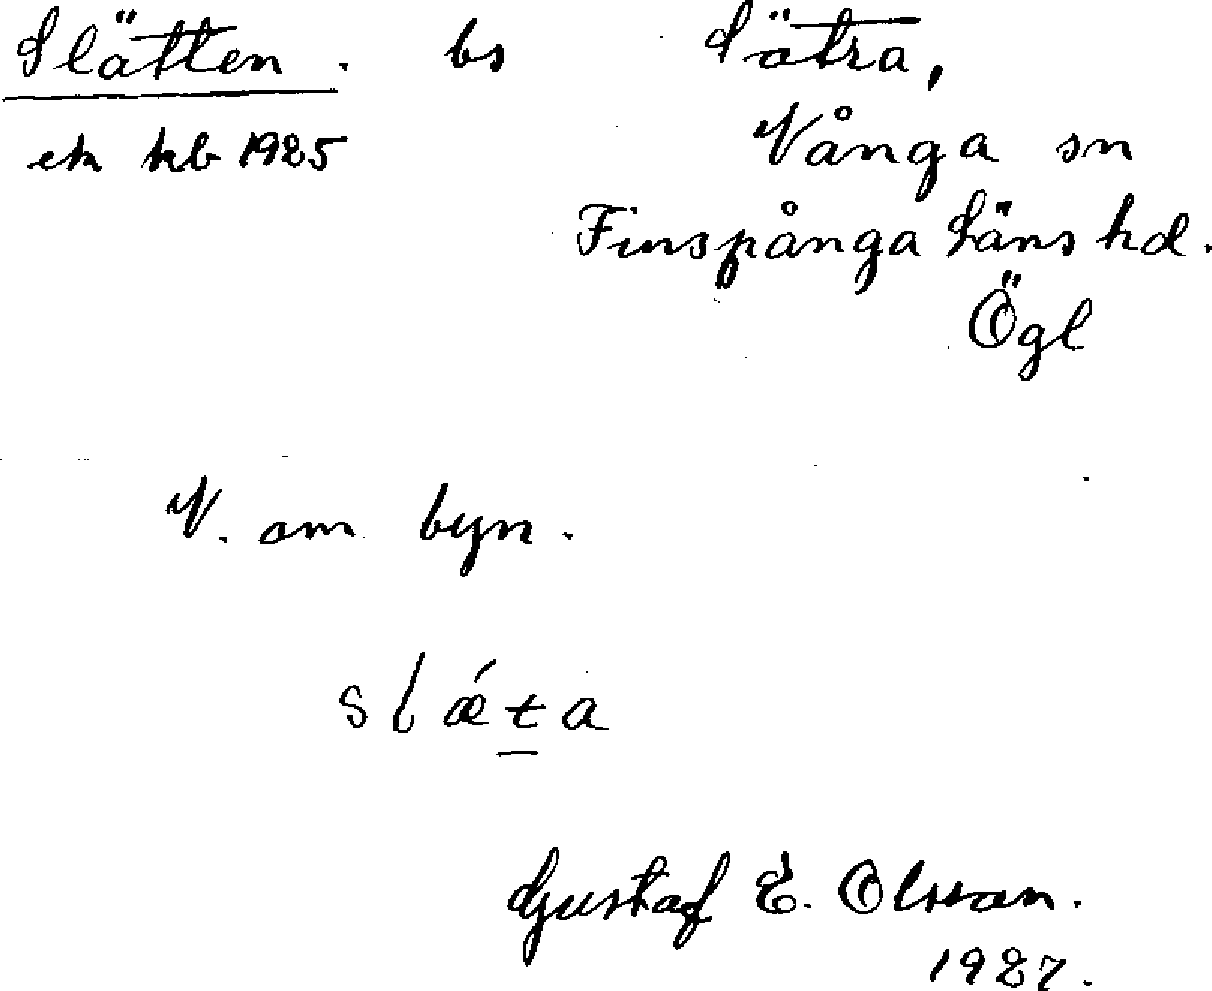 Slätten. bs Sätra,
ek kb 1925 Vånga sn
Finspånga läns hd.
Ögl
V. om byn.
slǽta
Gustaf E. Olsson.
1927.